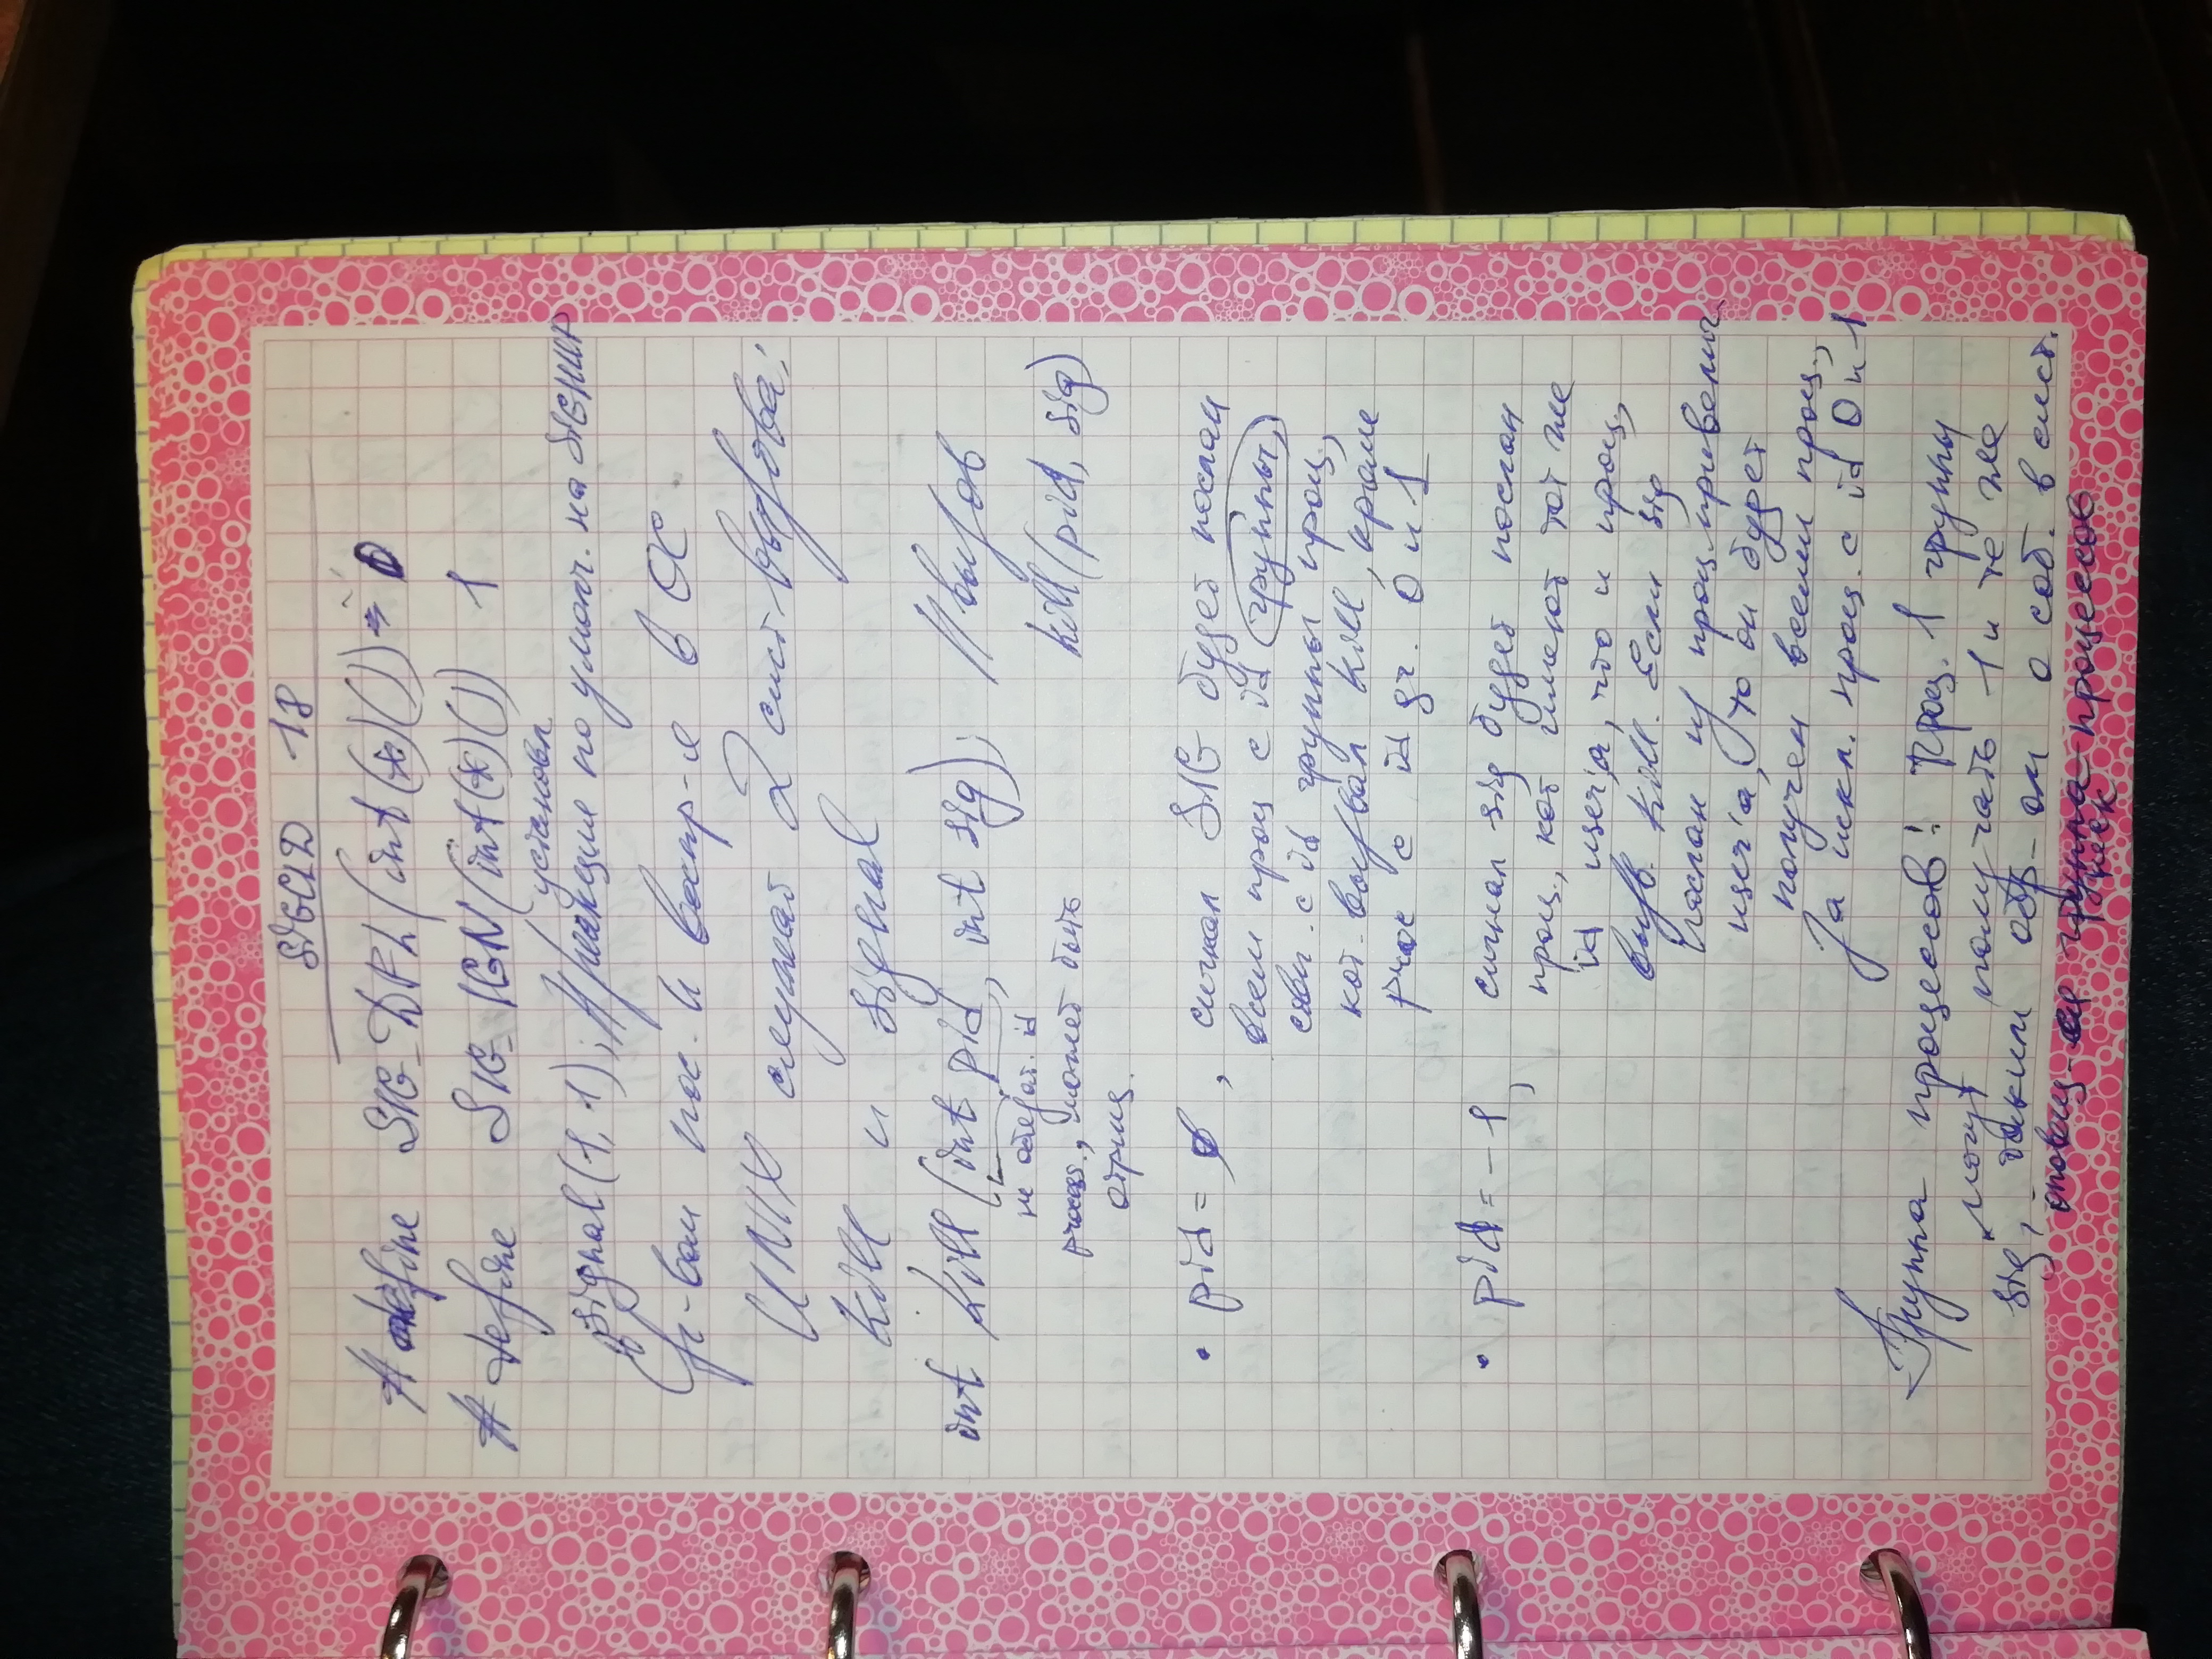 SIGCLD 18
# define SIG_DFL (int(*)()) 0
# define SIG_IGN (int(*)()) 1
установл.
signal(1, 1); // реакция по умолч. на SIGHUP
Ср-вом пос. и воспр-я в ОС
UNIX служат 2 сист. вызова:
kill и signal
int kill (int pid, int sig); // вызов
не обязат. id
process., может быть
kill(pid, sig)
отриц.
• pid = 0, сигнал SIG будет послан
всем проц с id группы,
совп. с id группы проц.,
кот. вызвал kill, кроме
proc с id gr. 0 и 1
• pid = -1, сигнал sig будет послан
проц., кот имеют тот же
id user'a, что и проц.,
вызв. kill. Если sig
послан из проц. привелич.
user'a, то он будет
получен всеми проц.,
за искл. проц. с id 0 и 1
Группа процессов! Проц. 1 группы
могут получать 1 и те же
sig, таким обр-ом о соб. в сист.
оповещ-ся группа процессов
неск